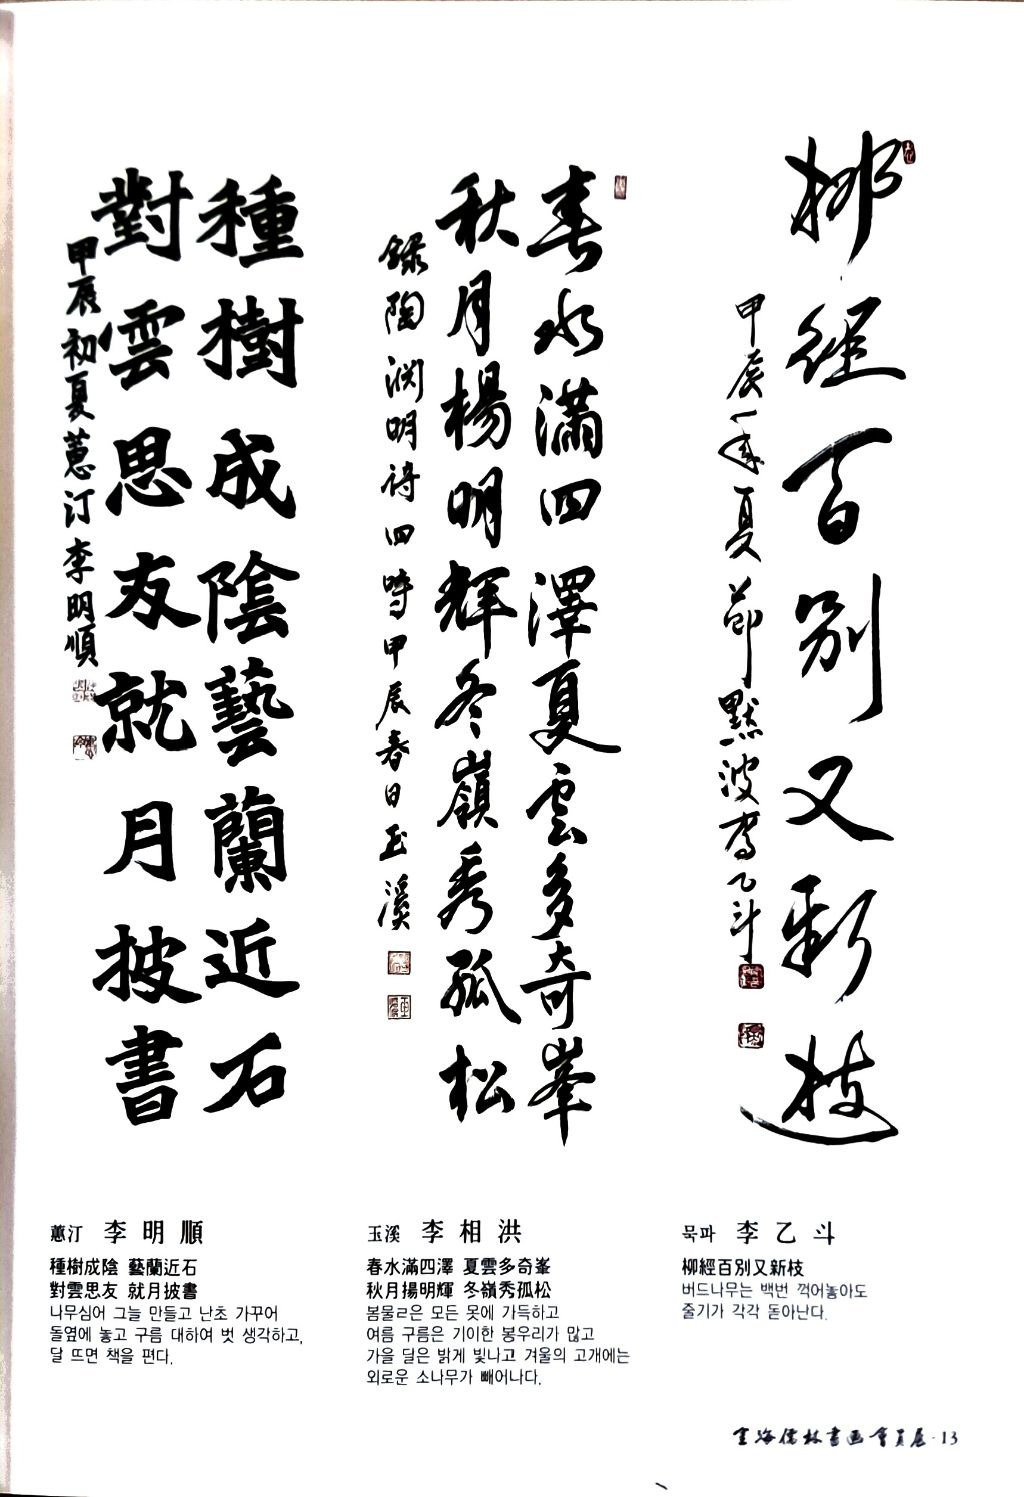 柳經百別又新枝
甲辰年夏節 默波 李乙斗
春水滿四澤夏雲多奇峯
秋月楊明輝冬嶺秀孤松
錄陶渊明诗四時甲辰春日玉溪
種樹成陰藝蘭近石
對雲思友就月披書
甲辰初夏蕙汀李明順
蕙汀 李明順
種樹成陰 藝蘭近石
對雲思友 就月披書
나무심어 그늘 만들고 난초 가꾸어
돌옆에 놓고 구름 대하여 벗 생각하고,
달 뜨면 책을 편다.
玉溪 李相洪
春水滿四澤 夏雲多奇峯
秋月揚明輝 冬嶺秀孤松
봄물ㄹ은 모든 못에 가득하고
여름 구름은 기이한 봉우리가 많고
가을 달은 밝게 빛나고 겨울의 고개에는
외로운 소나무가 빼어나다.
묵파 李乙斗
柳經百別又新枝
버드나무는 백번 꺽어놓아도
줄기가 각각 돋아난다.
雲海儒林書画會員展·13